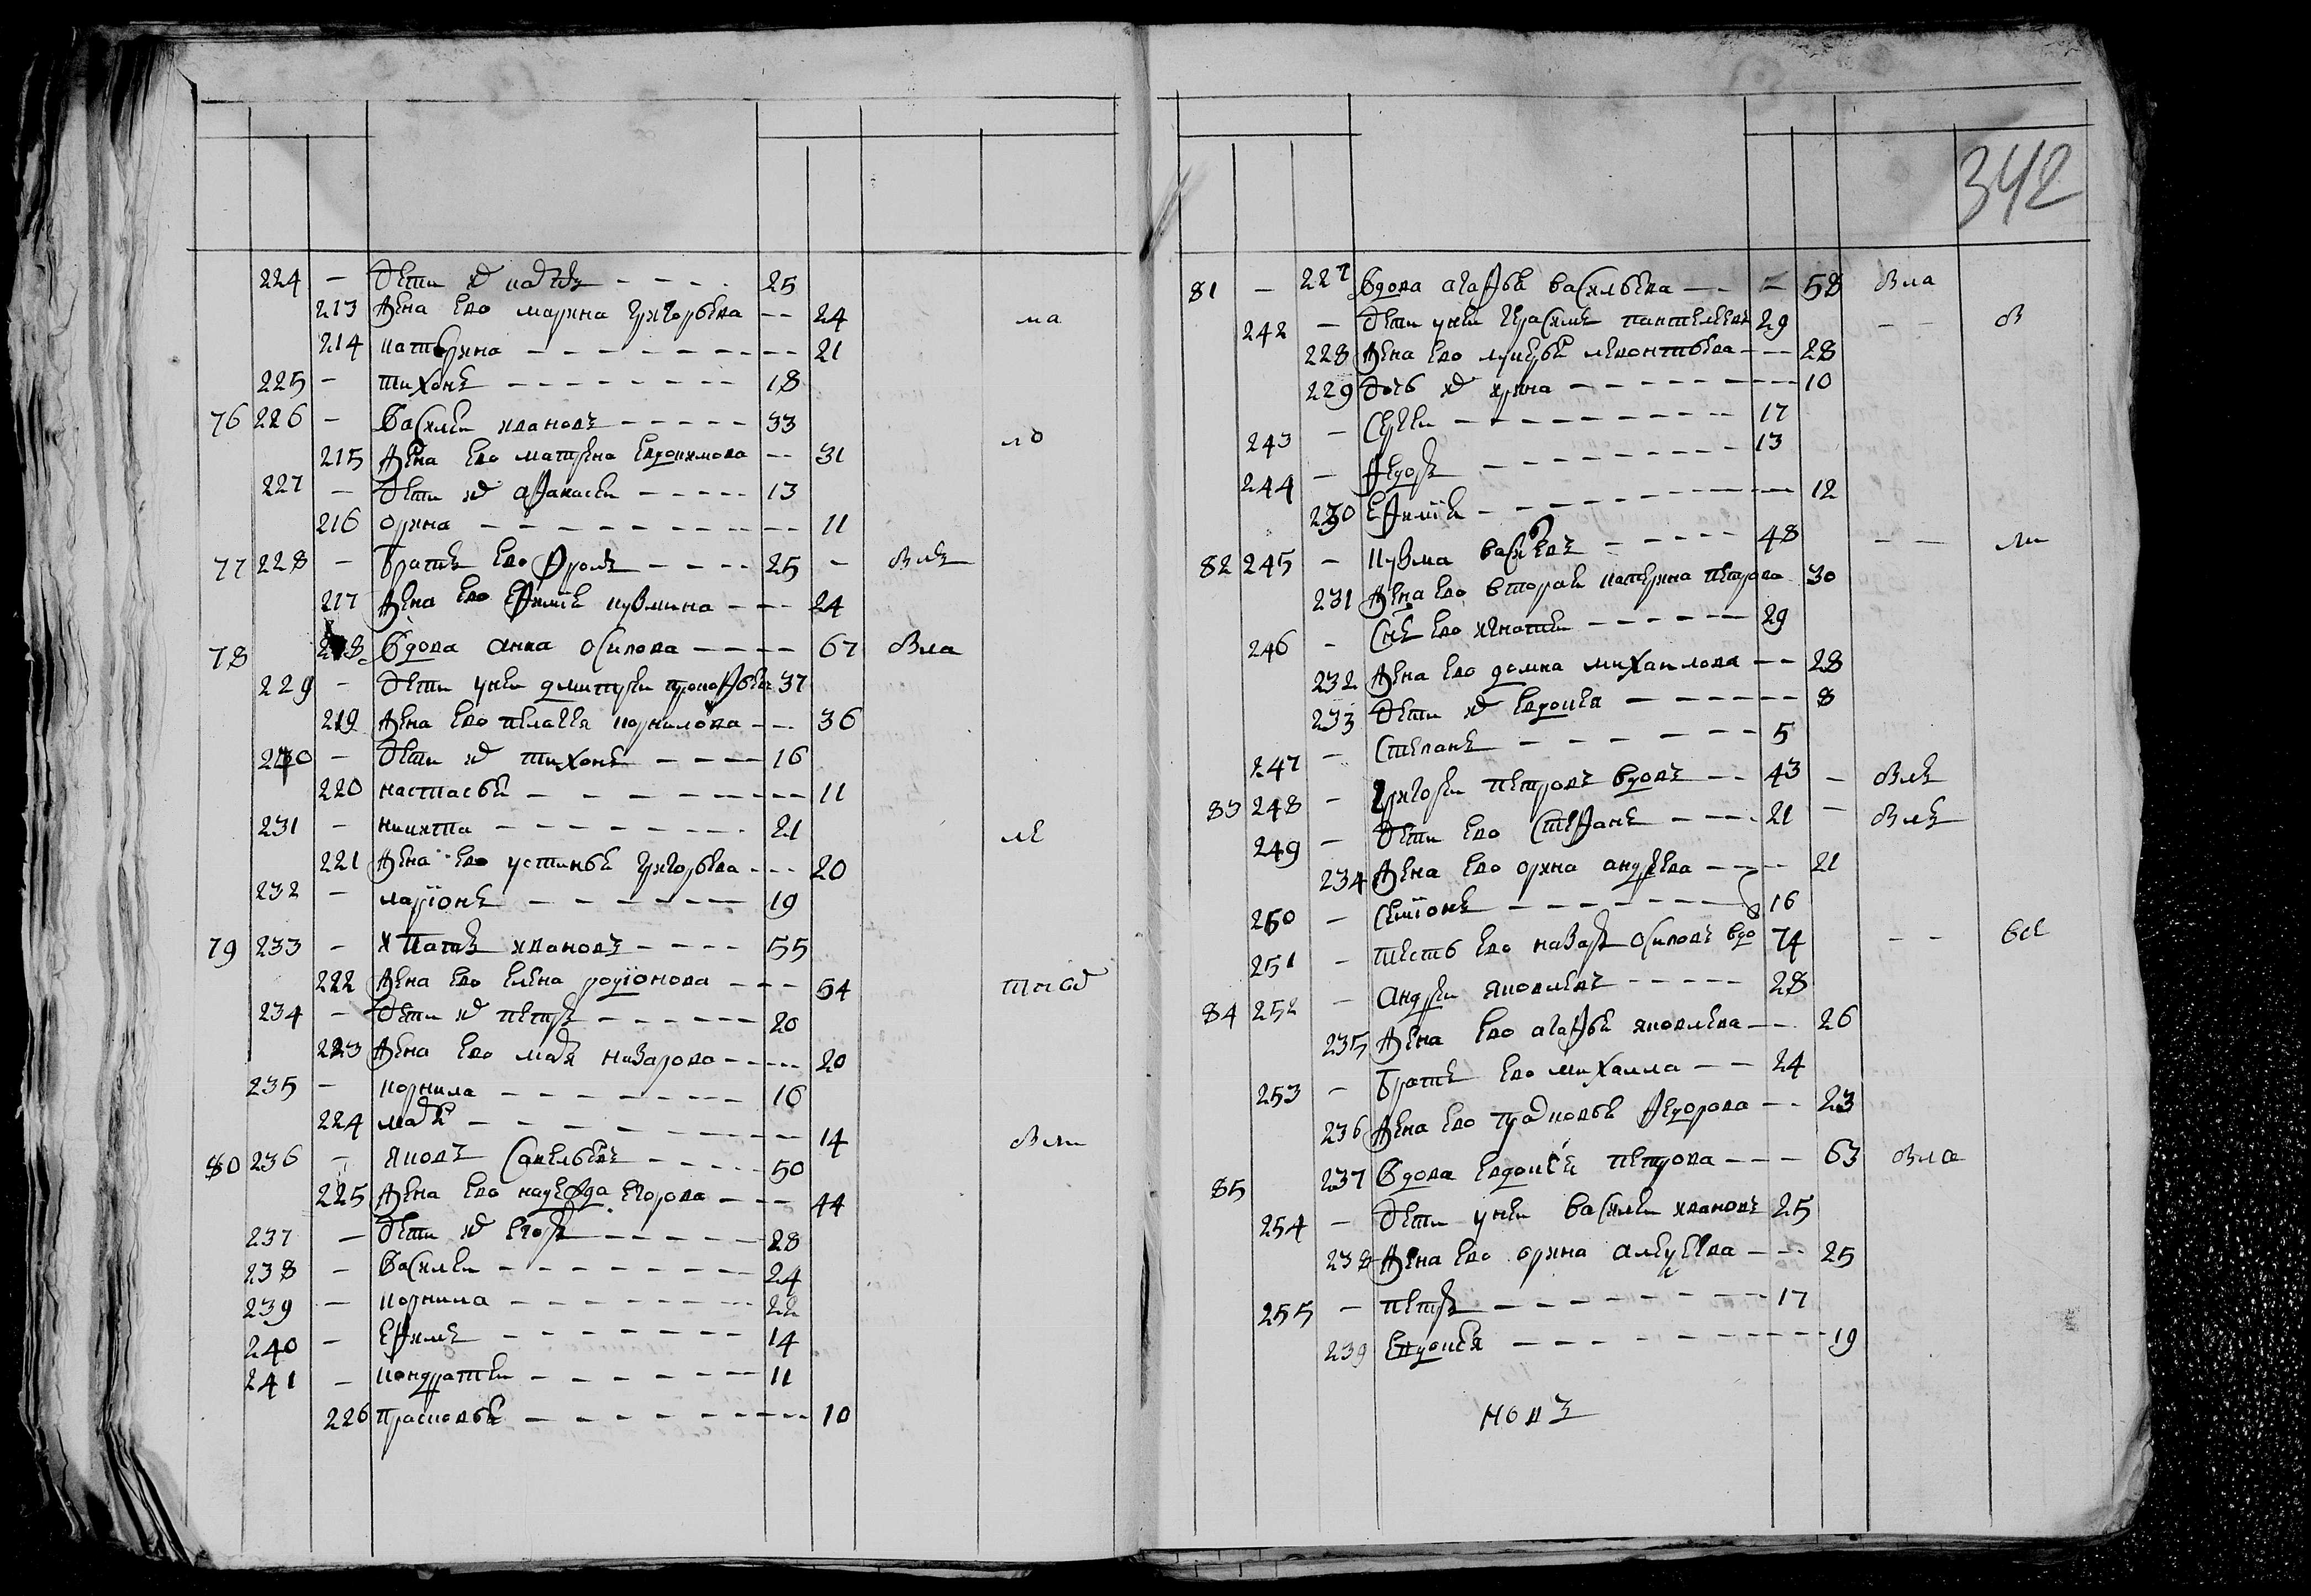 342
224 - дети их кадръ - - - - 25
213 жена ево марина григорьева - - 24 ма
214 катерина - - - - 21
225 - тихонъ - - - - 18
76 226 - василеи ивановъ - - - - 33
215 жена ево матрена евдокимова - - 31 ло
227 - дети их афанасеи - - - - 13
216 орина - - - - 11
77 228 - братъ ево фролъ - - - - 25 - влъ
217 жена ево ефимѣя кузмина - - - 24
78 218 вдова анна осипова - - - - 67 вла
229 - дети у неи дмитреи прокофьевъ 37
219 жена ево пелагея корнилова - - - 36
230 - дети их тихонъ - - - - 16
220 настасья - - - - 11
231 - никита - - - - 21 ле
221 жена ево устинья григорьева - - - 20
232 - ларїонъ - - - - 19
79 233 - ипатъ ивановъ - - - - 55
222 жена ево елена родїонова - - - 54
234 - дети их петръ - - - - 20
223 жена ево марья назарова - - - 20
235 - корнила - - - - 16
224 марья - - - - 14
80 236 - яковъ савельевъ - - - - 50 вли
225 жена ево надежда егорова - - - 44
237 - дети их егоръ - - - - 28
238 - василеи - - - - 24
239 - корнила - - - - 22
240 - ефимъ - - - - 14
241 - кондратеи - - - - 11
226 прасковья - - - - 10
81 - 227 вдова агафья васильева - - - 58 вла
242 - дети у неи герасимъ пантелеевъ 29 - - в
228 жена ево лукерья леонтьева - - - 28
229 дочь их ирина - - - - 10
243 - сергеи - - - - 17
244 - федоръ - - - - 13
230 ефимїя - - - - 12
82 245 - кузма васильевъ - - - - 48 - - ли
231 жена ево вторая катерина петрова 30
246 - снъ ево игнатеи - - - - 29
232 жена ево домна михаилова - - 28
233 дети их евдокея - - - - 8
247 - степанъ - - - - 5
83 248 - григореи петровъ вдовъ - - 43 - влъ
249 - дети ево стефанъ - - - - 21 - влъ
234 жена ево орина андреева - - - 21
250 - семїонъ - - - - 16
251 - тесть ево назаръ осиповъ вдо 74 - - все
84 252 - андреи яковлевъ - - - - 28
235 жена ево агафья яковлева - - - 26
253 - братъ ево михаила - - 24
236 жена ево прасковья федорова - - 23
85 237 вдова евдокея петрова - - - 63 вла
254 - дети у неи василеи ивановъ 25
238 жена ево орина алексеева - - - 25
255 - петръ - - - - 17
239 евдокея - - - - 19